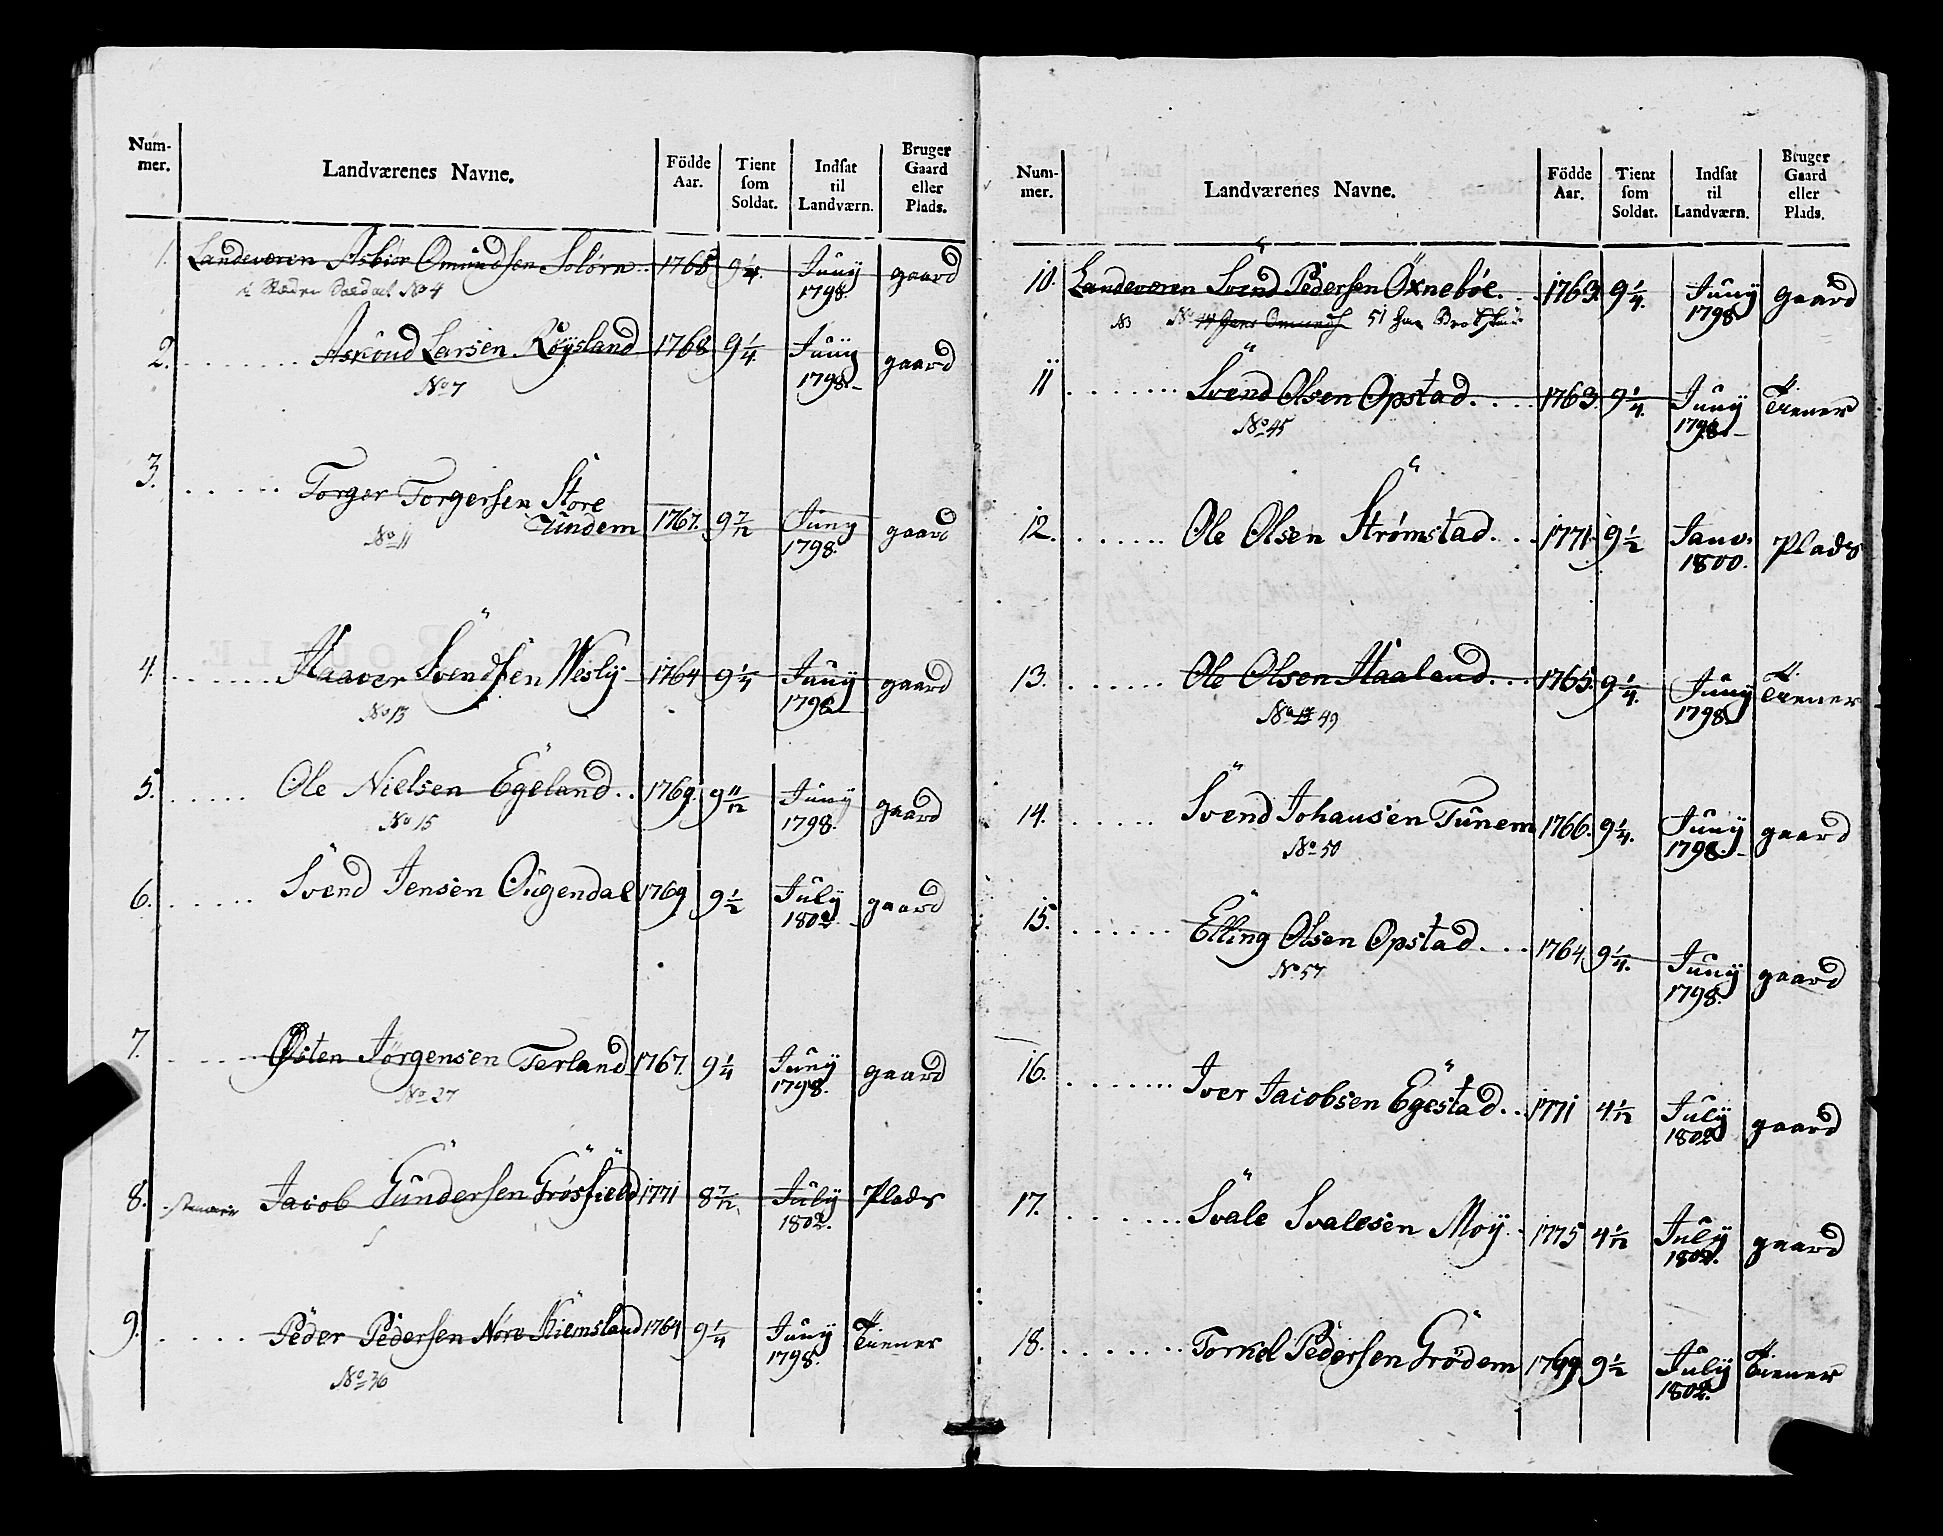 Num-
mer.
Landværenes Navne.
Födde
Aar.
Tient
som
Soldat.
Indsat
til
Landværn.
Bruger
Gaard
eller
Plads.
1. Landeværen Asbiör Omundsen Solørn 1765 9 1/4. Juny 1798. gaard
No 4
2. Larsen Röÿsland 1768 9 1/4. Juny 1798. gaard
No 7
3. Torger Torgersen Store
Tundem 1767. 9 7/12 Juny 1798. gaard
No 11
4. Haaver Svendsen Wesly 1764 9 1/4 Juny 1798 gaard
No 13
5. Ole Nielsen Egeland 1769. 9 11/12 Juny 1798. gaard
No 15
6. Svend Jensen Ougendal 1769 9 1/2 July 1802 gaard
7. Østen Jörgensen Terland 1767. 9 1/4 Juny 1798. gaard
No 27
8. Jacob Gundersen Grøsfield 1771 8 7/12 July 1802. Plads
9. Peder Pedersen Nöre Hiemsland 1764 9 1/4 Juny 1798. Tiener
No 36
Num-
mer.
Landværenes Navne.
Födde
Aar.
Tient
som
Soldat.
Indsat
til
Landværn.
Bruger
Gaard
eller
Plads.
10. Landeværen Svend Pedersen Öxneböe. 1763. 9 1/4. Juny 1798 gaard
51
11 Svend Olsen Opstad. 1763. 9 1/4. Juny 1798 Tiener
No 45
12. Ole Olsen Strømstad. 1771. 9 1/2 Janv. 1800. Plads
13. Ole Olsen Haaland. 1765. 9 1/4. Juny 1798 Tiener
No 49
14. Svend Johansen Tunem 1766. 9 1/4. Juny 1798. gaard
No 50
15. Elling Olsen Opstad. 1764 9 1/4. Juny 1798. gaard
No 57
16. Iver Jacobsen Egestad. 1771 4 1/12 July 1802 gaard
17. Svale Svalesen Moy 1775 4 1/12 July 1802. gaard
18. Torkel Pedersen Grödem 1769 9 1/2 July 1802. Tiener